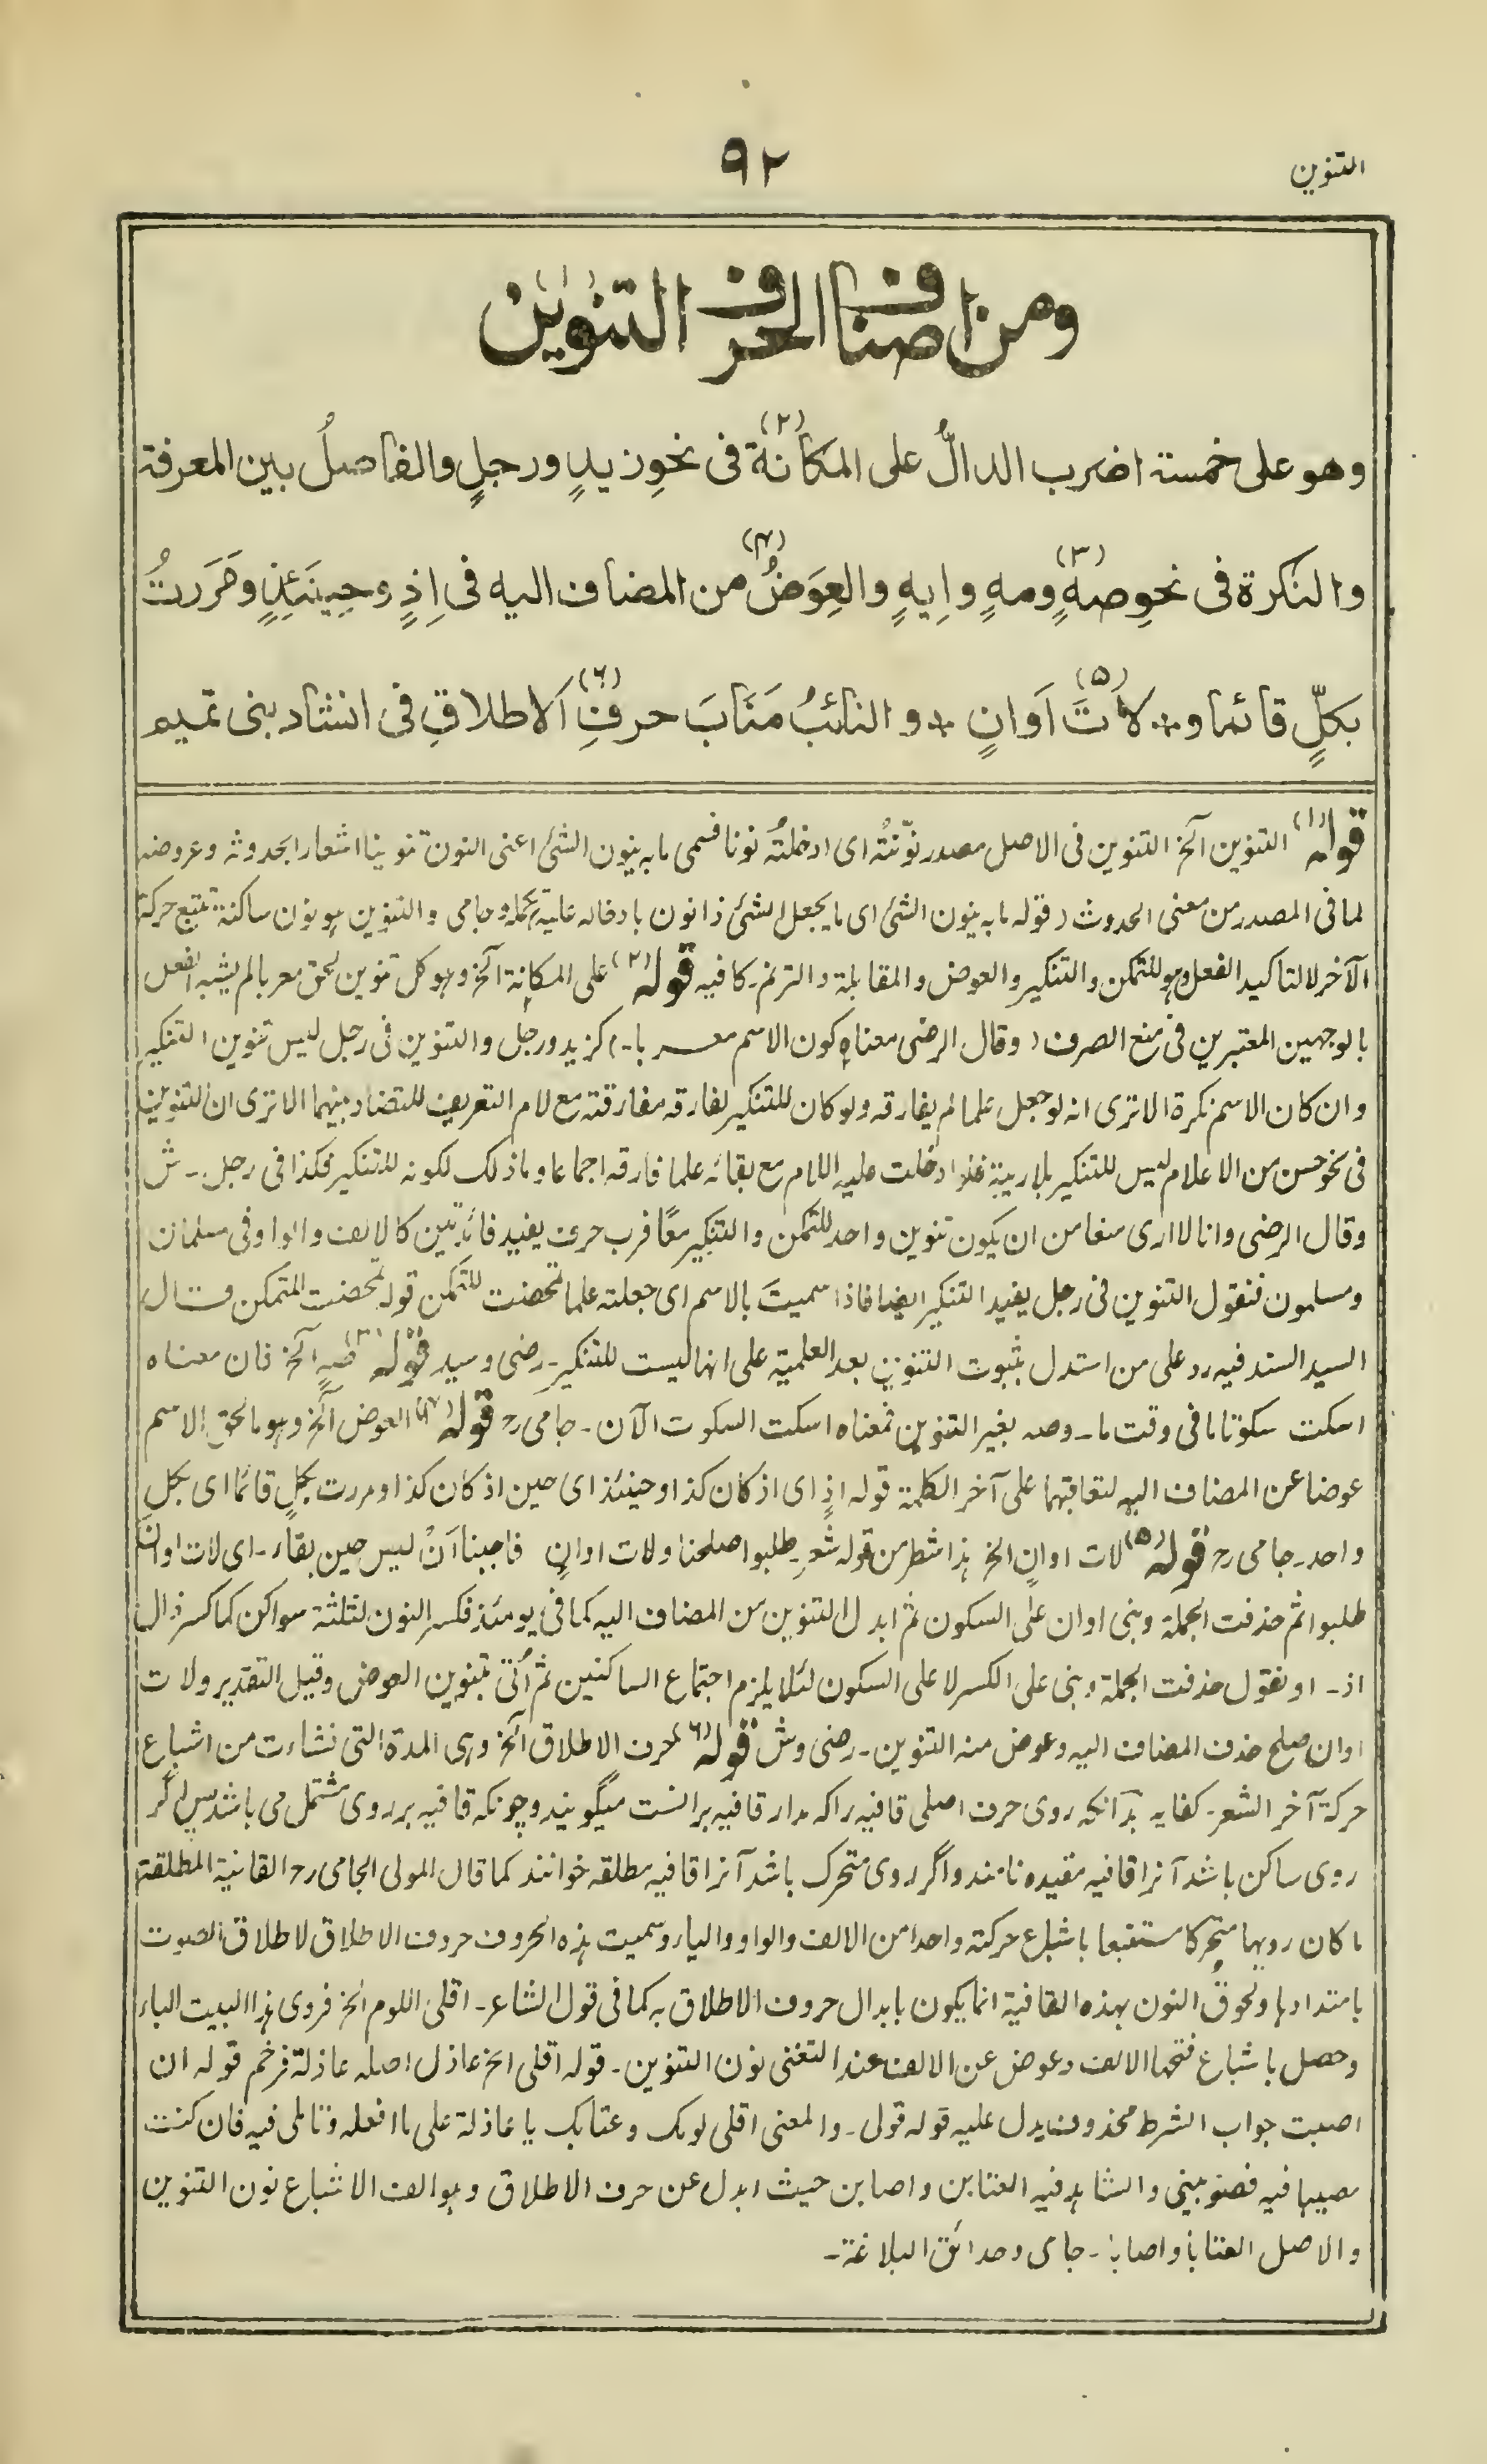 التنوين
٩٢
ومن اصناف الحرف التنوين (١)
وهو على خمسة اضرب الدالُّ على المكانة (٢) فى نحوِ زيدٍ ورجلٍ والفاصلُ بين المعرفة
والنكرة فى نحوِ صهٍ (٣) ومهٍ وإيهٍ والعِوَضُ (٤) من المضاف اليه فى إذٍ وحِينَئِذٍ ومَررتُ
بكلٍّ قائما و* لاتَ (٥) اَوانٍ * و النائبُ مَنَابَ حرفِ (٦) الاطلاقِ فى انشاد بنى تميم
قوله (١) التنوين آلخ التنوين فى الاصل مصدر نوّنتُه اى ادخلتُه نونا فسمى مابه ينون الشئ اعنى النون تنوينا اشعارا بحدوثه وعروضه
لما فى المصدر من معنى الحدوث (قوله مابه ينون الشئ اى ما يجعل الشئ ذا نون بادخاله عليه) جامى والتنوين ہو نون ساكنة تتبع حركة
الآخر لا لتاكيد الفعل وہو للتمكن والتنكير والعوض والمقابلة والترنم۔ كافيه قوله (٢) على المكانة آلخ وہو كل تنوين لحق معربا لم يشبه الفعل
بالوجهين المعتبرين فى منع الصرف (وقال الرضى معناه كون الاسم معربا۔) كزيد ورجل والتنوين فى رجل ليس تنوين التنكير
وان كان الاسم نكرة الا ترى انه لو جعل علما لم يفارقه ولو كان للتنكير لفارقه مفارقته مع لام التعريف للتضاد بينهما الا ترى ان التنوين
فى نحو حسن من الاعلام ليس للتنكير بلا ريبة فلو ادخلت عليه اللام مع بقائه علما فارقه اجماعا وما ذلك لكونه للتنكير فكذا فى رجل۔ ش
وقال الرضى وانا لا ارى منعا من ان يكون تنوين واحد للتمكن والتنكير معًا فرب حرف يفيد فائدتين كالالف والواو فى مسلمان
ومسلمون فنقول التنوين فى رجل يفيد التنكير ايضا فاذا سميتَ بالاسم اى جعلته علما تمحضت للتمكن قوله تمحضت للتمكن قال
السيد السند فيه رد على من استدل بثبوت التنوين بعد العلمية على انها ليست للتنكير۔ رضى وسيد قوله (٣) صهٍ آلخ فان معناه
اسكت سكوتا ما فى وقت ما۔ وصه بغير التنوين فمعناه اسكت السكوت الآن۔ جامى رح قوله (٤) العوض آلخ وہو ما لحق الاسم
عوضا عن المضاف اليه لتعاقبهما على آخر الكلمة قوله اذٍ اى اذ كان كذا وحينئذ اى حين اذ كان كذا ومررت بكلٍ قائما اى بكل
واحد۔ جامى رح قوله (٥) لات اوانٍ الخ ہذا شطر من قوله شعرِ۔ طلبوا صلحنا ولات اوانٍ فاجبنا اَنْ ليس حين بقاء۔ اى لات اوان
طلبوا ثم حذفت الجملة وبنى اوان على السكون ثم ابدل التنوين من المضاف اليه كما فى يومئذ فكسر النون لثلثة سواكن كما كسر ذال
اذ۔ او نقول حذفت الجملة وبنى على الكسر لا على السكون لئلا يلزم اجتماع الساكنين ثم اُتى بتنوين العوض وقيل التقدير ولات
اوان صلح حذف المضاف اليه وعوض منه التنوين۔ رضى وش قوله (٦) حرف الاطلاق آلخ وہى المدة التى نشاءت من اشباع
حركة آخر الشعر۔ كفايه بدآنكه روى حرف اصلى قافيه را كه مدار قافيه برانست ميگويند وچونكه قافيه بر روى مشتمل مى باشد پس اگر
روى ساكن باشد آنرا قافيه مقيده نامند واگر روى متحرك باشد آنرا قافيه مطلقه خوانند كما قال المولى الجامى رح القافية المطلقة
ما كان رويها متحركا مستتبعا باشباع حركته واحدا من الالف والواو والياء وسميت ہذه الحروف حروف الاطلاق لاطلاق الصوت
بامتدادہا ولحوق النون بهذه القافية انما يكون بابدال حروف الاطلاق به كما فى قول الشاعر۔ اقلى اللوم الخ فروى ہذا البيت الباء
وحصل باشباع فتحها الالف وعوض عن الالف عند التغنى نون التنوين۔ قوله اقلى الخ عاذل اصله عاذلة فرخم قوله ان
اصبت جواب الشرط محذوف يدل عليه قوله قولى۔ والمعنى اقلى لومك وعتابك يا عاذلة على ما افعله وتاملى فيه فان كنت
مصيبا فيه فصوبينى والشاہد فيه العتابن واصابن حيث ابدل عن حرف الاطلاق وہو الف الاشباع نون التنوين
والاصل العتابا واصابا۔ جامى وحدائق البلاغة۔